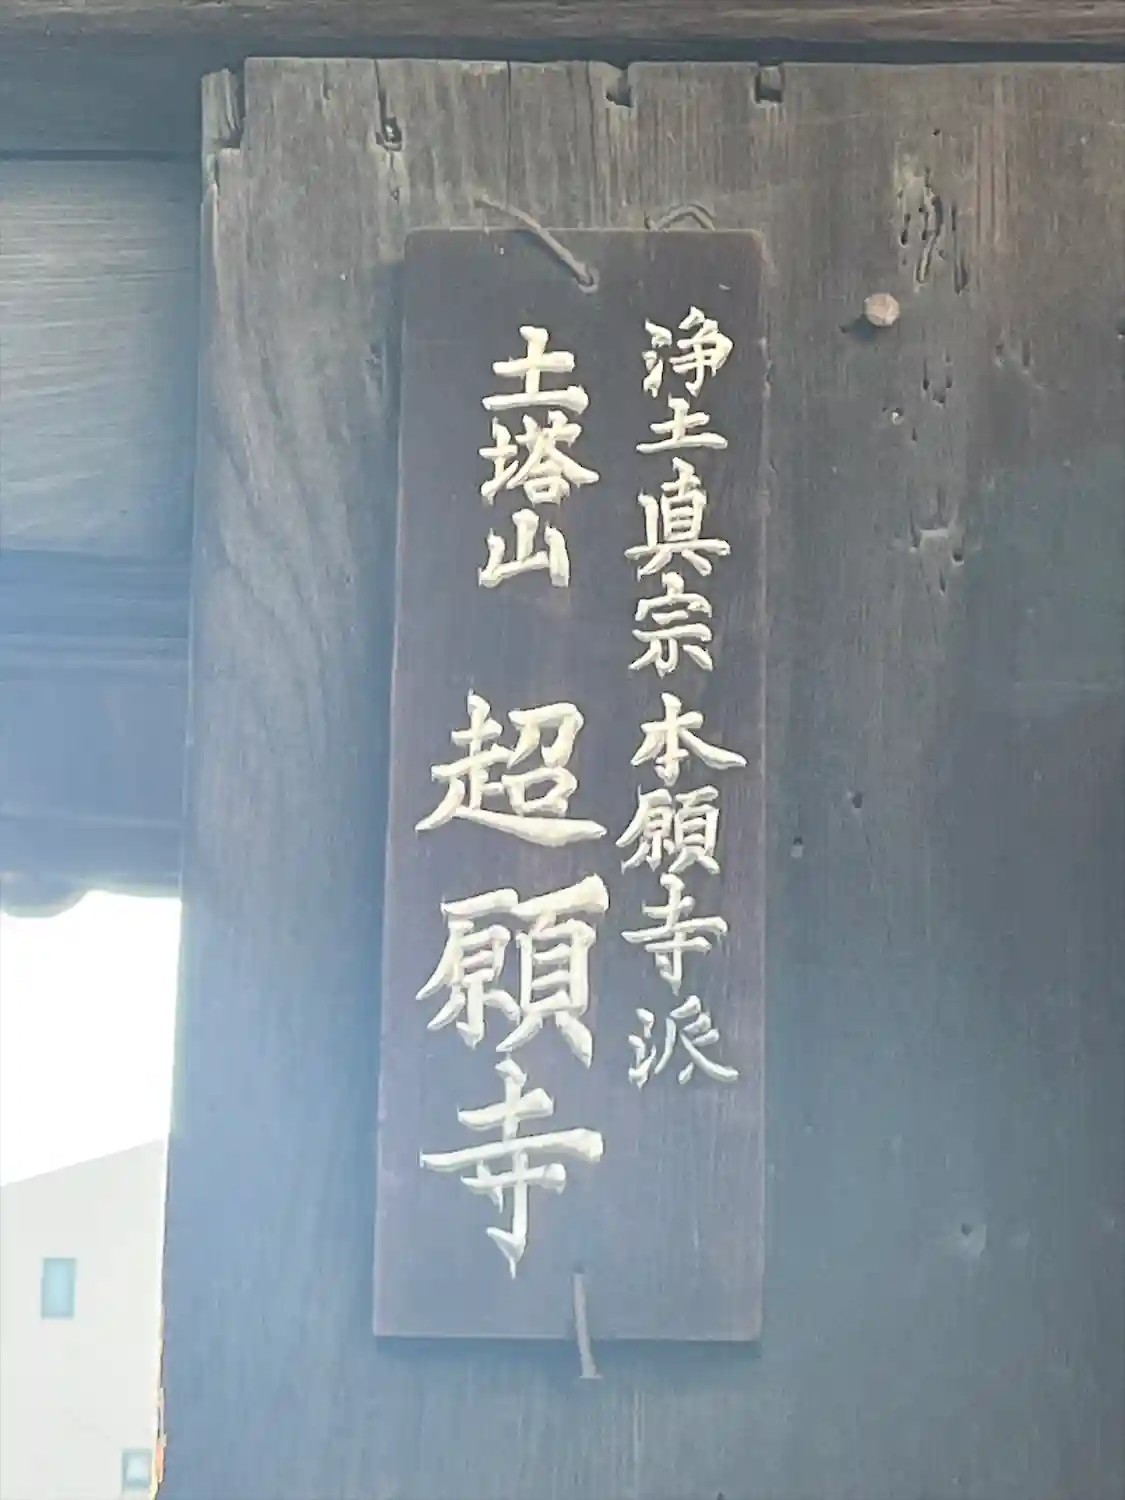 浄土真宗本願寺派
土塔山 超願寺